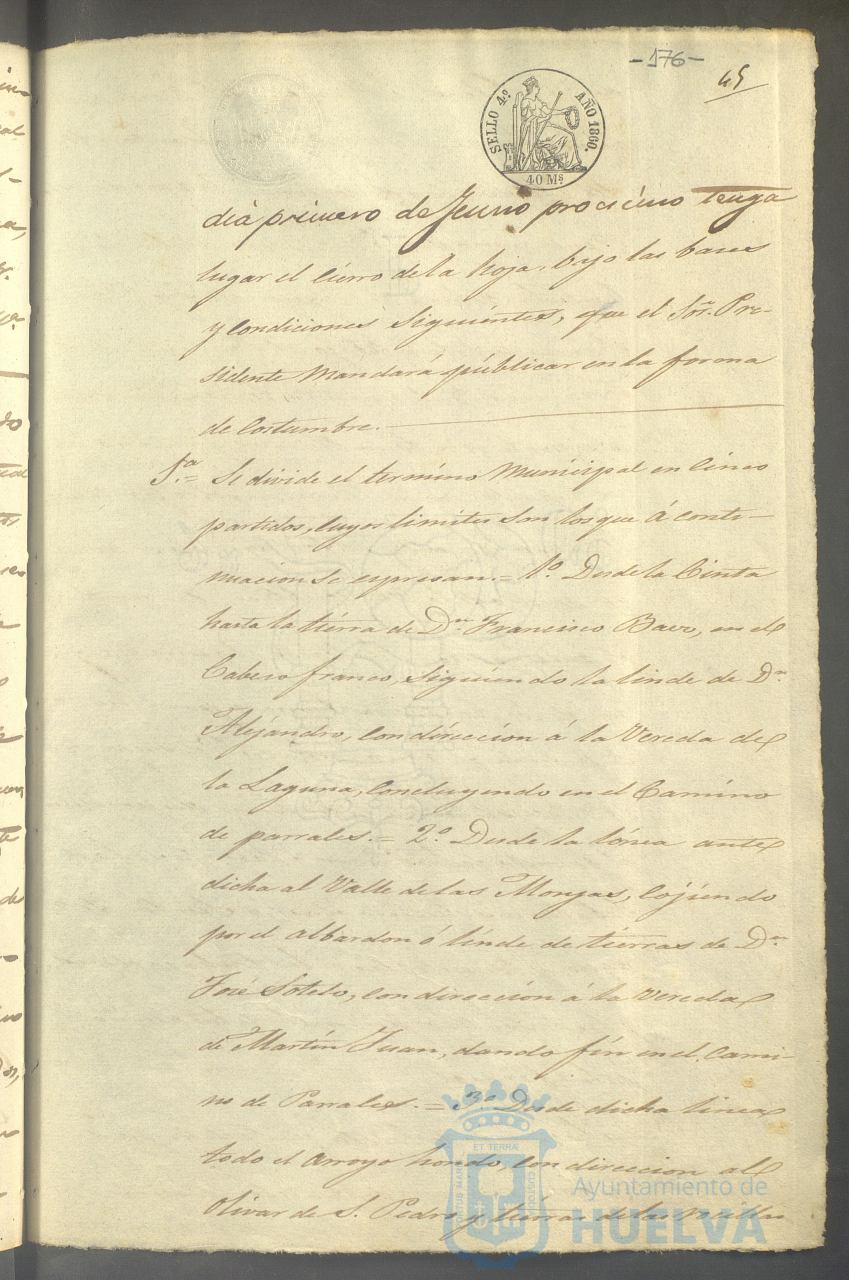 -176-
45
SELLO 4º AÑO 1860.
40 Mˢ
dia primero de Junio procsimo tenga
lugar el cierro de la hoja, bajo las bases
y condiciones siguientes, que el Sor. Pre-
sidente mandará públicar en la forma
de costumbre.
1.ª = Se divide el termino Municipal en cinco
partidos, cuyos limites son los que á conti-
nuacion se espresan. = 1º. Desde la Cinta
hasta la tierra de Dⁿ Francisco Baez, en el
Cabeso franco, siguiendo la linde de Dⁿ
Alejandro, con direccion á la Vereda de
la Laguna, concluyendo en el Camino
de parrales. = 2º. Desde la línea ante
dicha al Valle de las Monjas, cojiendo
por el albardon ó linde de tierras de Dⁿ
José Sotelo, con direccion á la vereda
de Martín Juan, dando fin en el Cami-
no de Parrales. = 3º Desde dicha linea
todo el arroyo hondo, con direccion al
Olivar de S. Pedro y tierras de las
ET TERRA
Ayuntamiento de
HUELVA